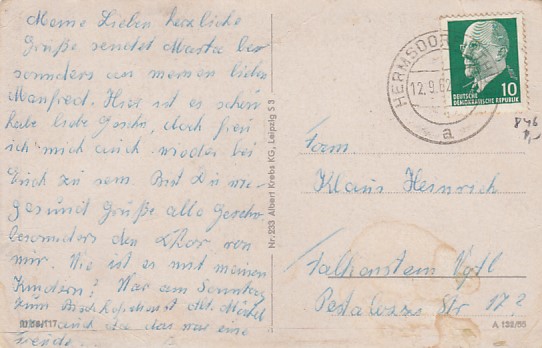 Meine Lieben herzliche
Grüße sendet Martha be
sonders an meinen lieben
Manfred. Hier ist es schön
habe liebe Geschw, doch freu
ich mich auch wieder bei
Euch zu sein. Bist Du wie
gesund Grüße alle Geschw
besonders den Chor von
mir. Wie ist es mit meinen
Kindern? War am Sonntag
zum
auch die das war eine
Freude
Nr. 233 Albert Krebs KG, Leipzig S 3
HERMSDOR
12.9.62
a
10
DEUTSCHE
DEMOKRATISCHE REPUBLIK
Fam.
Klaus Heinrich
Falkenstein Vgtl
Pestalozzi Str 17?
A 132/55